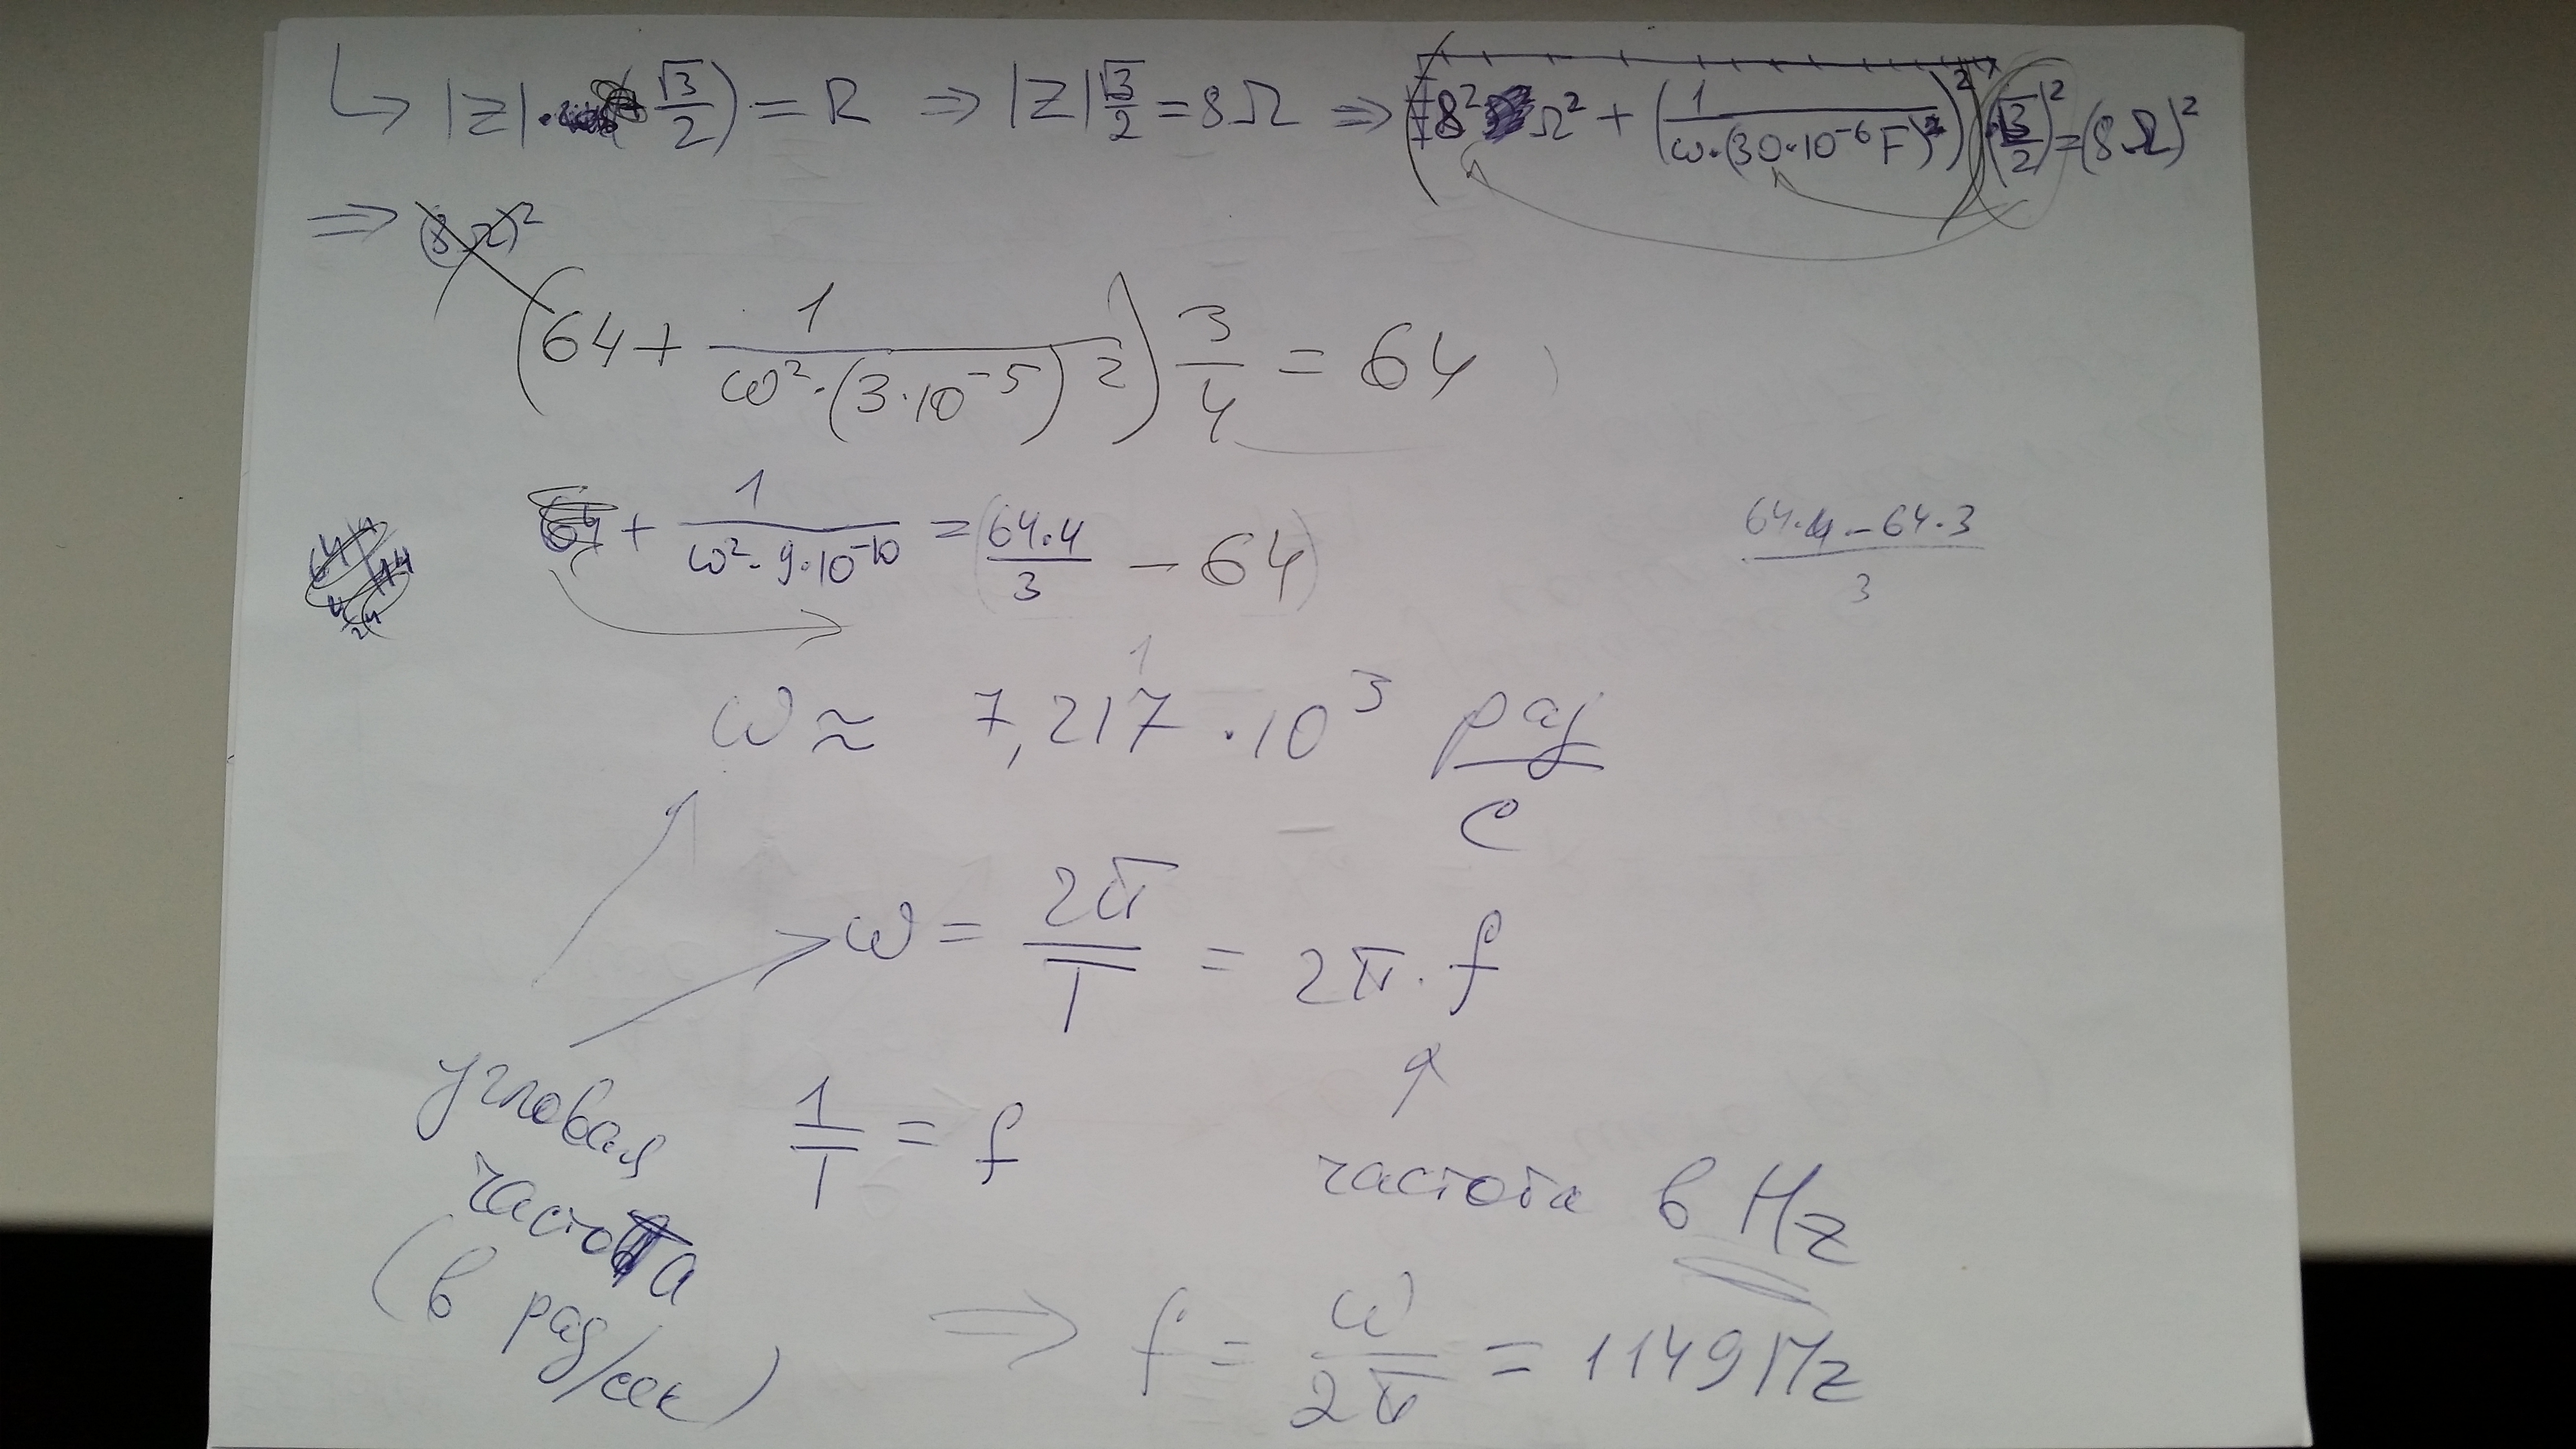 |Z| · (√3/2) = R ⇒ |Z| √3/2 = 8 Ω ⇒ (8² Ω² + (1/(ω·(30·10⁻⁶ F)))²)(√3/2)² = (8 Ω)²
⇒
(64 + 1/(ω²·(3·10⁻⁵)²)) 3/4 = 64
64 + 1/(ω²·9·10⁻¹⁰) = (64·4/3 − 64)
(64·4 − 64·3)/3
ω ≈ 7,217 · 10³ рад/с
ω = 2π/T = 2π · f
угловая
частота
(в рад/сек)
1/T = f
частота в Hz
⇒ f = ω/2π = 1149 Hz